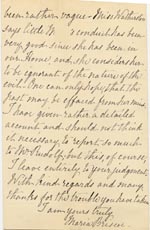 been rather vague - Miss Watherston
says little M conduct has been
very good since she has been in
our Home and she considers her
to be ignorant of the nature of the
evil. One can only hope that the
past may be effaced from her mind.
I have given rather a detailed
account and should not think
it necessary to report so much
to Mr Rudolf, but this of course,
I leave entirely to your judgment.
With kind regards and many
thanks for the trouble you have taken
I am yours truly